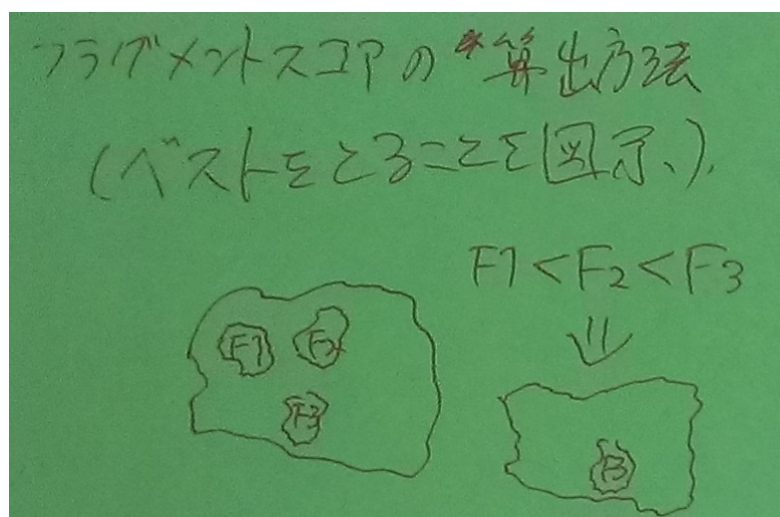 フラグメントスコアの*算出方法
(ベストをとることを図示、).
F1<F2<F3
F1 F2
F3
F3